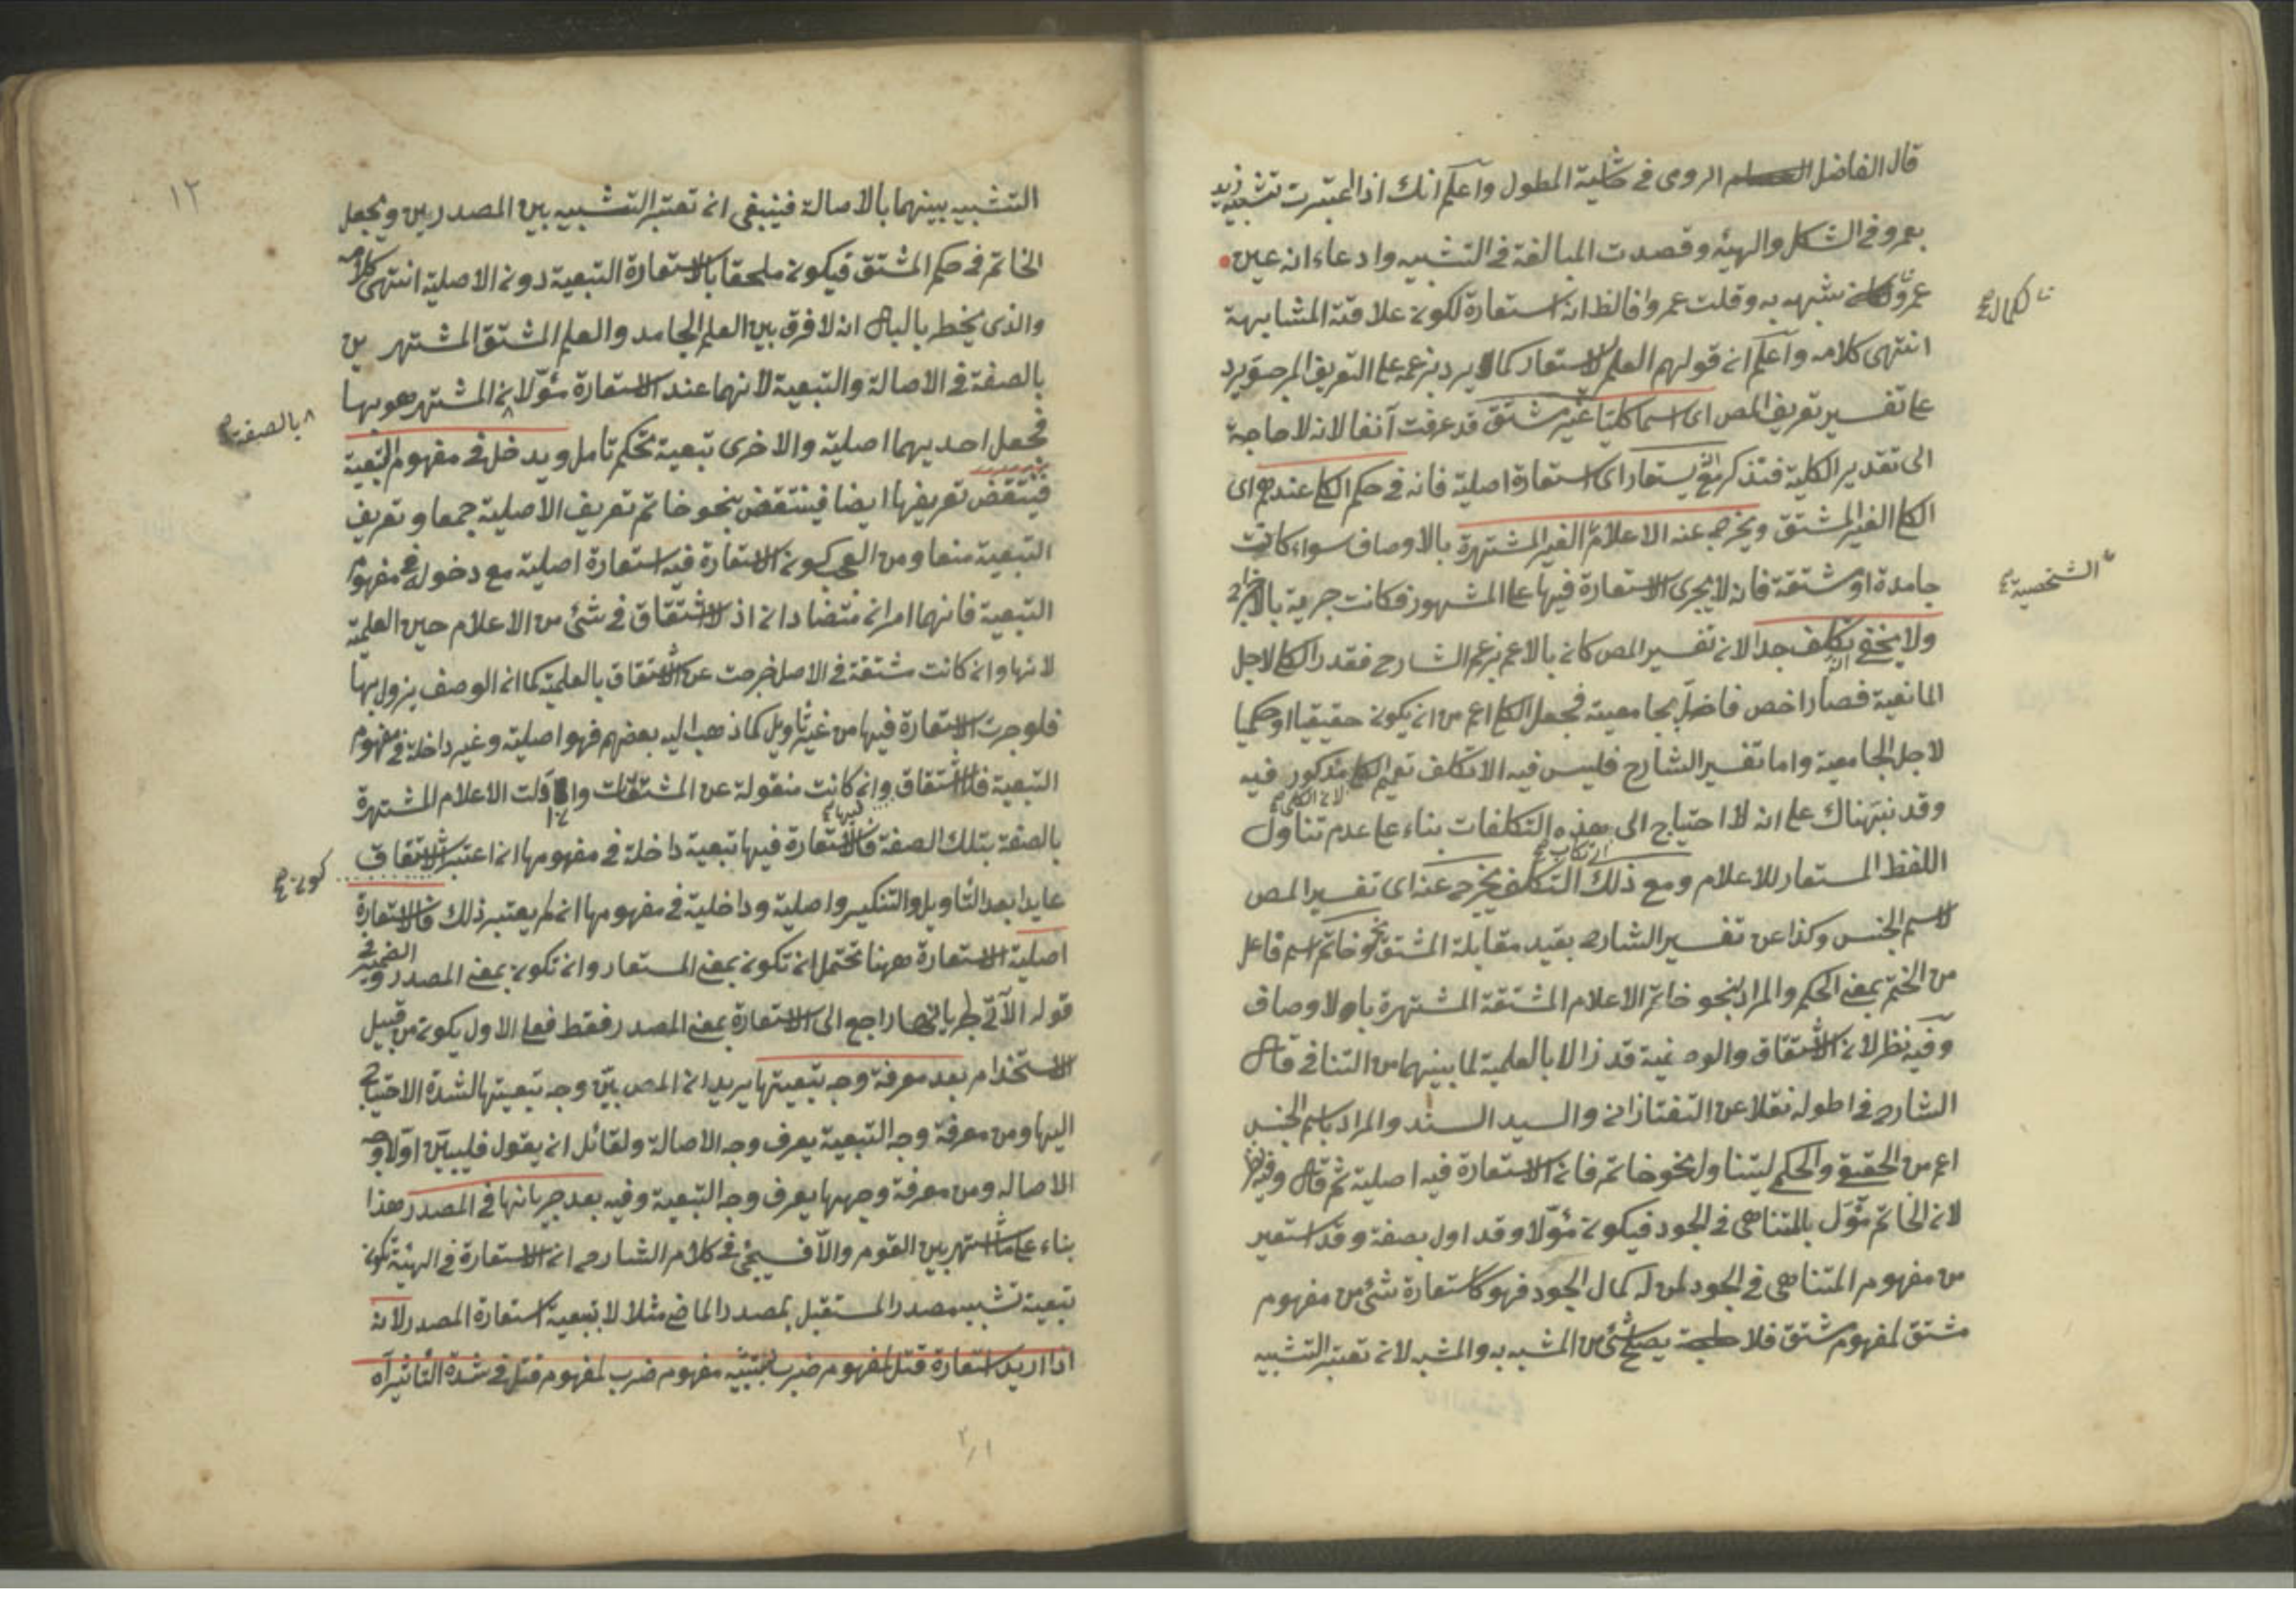 قال الفاضل الرومى فى حاشية المطول واعلم انك اذا اعتبرت تشبيه زيد
بعمرو فى الشكل والهيئه وقصدت المبالغة فى التشبيه وادعاء انه عين
عمرو شبهه به وقلت عمروا فالظ انه استعارة لكون علاقته المشابهة
انتهى كلامه واعلم ان قولهم العلم لا يستعار كما يرد بزعمه على التعريف المر يرد
على تفسير تعريف المص اى اسما كليا غير مشتق قد عرفت آنفا لانه لا حاجة
الى تقدير الكلية فتذكر يستعار اى استعارة اصلية فانه فى حكم الكلى عندهم اى
الكلى الغير المشتق ويخرج عنه الاعلام الغير المشتهرة بالاوصاف سواء كانت
جامدة او مشتقة فانه لا يجرى الاستعارة فيها على المشهور فكانت
ولا يخفى تكلف جدا لان تفسير المص كان بالاعم بزعم الشارح فقدر الكلى لاجل
المانعية فصار اخص بجامعيته فجعل الكلى اعم من ان يكون حقيقيا او حكميا
لاجل الجامعية واما تفسير الشارح فليس فيه الا تكلف تعميم الكلى مذكور فيه
لان الكلى
وقد نبهناك على انه لا احتياج الى هذه التكلفات بناء على عدم تناول
ارتكاب
اللفظ المستعار للاعلام ومع ذلك التكلف يخرج عنه اى تفسير المص
لاسم الجنس وكذا عن تفسير الشارح بقيد مقابلة المشتق نحو خاتم اسم فاعل
من الختم بمعنى الحكم والمراد بنحو خاتم الاعلام المشتقة المشتهرة باولا وصاف
وفيه نظر لان الاشتقاق والوصفية قد زالا بالعلمية لما بينهما من التنافى قال
الشارح فى اطوله نقلا عن التفتازانى والسيد السند والمراد باسم الجنس
اعم من الحقيقى والحكمى ليتناول نحو خاتم فان الاستعارة فيه اصلية ثم قال وفيه نظر
لان الخاتم مؤول بالمتناهى فى الجود فيكون مؤولا وقد اول بصفة وقد استعير
من مفهوم المتناهى فى الجود لمن له كمال الجود فهو كاستعارة شئ من مفهوم
مشتق لمفهوم مشتق فلا يصلح شئ من المشبه به والمشبه لان تعتبر التشبيه
الشخصية
١٢
التشبيه بينهما بالاصالة فينبغى ان تعتبر التشبيه بين المصدرين ويجعل
الخاتم فى حكم المشتق فيكون ملحقا بالاستعارة التبعية دون الاصلية انتهى كلامه
والذى يخطر بالبال ان لا فرق بين العلم الجامد والعلم المشتق المشتهرين
بالصفة فى الاصالة والتبعية لانهما عند الاستعارة مؤولان المشتهر هو بها
فجعل احديهما اصلية والاخرى تبعية تحكم تامل ويدخل فى مفهوم التبعية
فينتقض تعريفها ايضا فينتقض بنحو خاتم تعريف الاصلية جمعا وتعريف
التبعية منعا ومن العجب كون الاستعارة فيه استعارة اصلية مع دخوله فى مفهوم
التبعية فانهما امران متضادان اذ لا اشتقاق فى شئ من الاعلام حين العلمية
لانها وان كانت مشتقة فى الاصل خرجت عن الاشتقاق بالعلمية كما ان الوصف يزول بها
فلو جرت الاستعارة فيها من غير تأويل كما ذهب اليه بعضهم فهو اصلية وغير داخلة فى مفهوم
التبعية فلا اشتقاق وان كانت منقولة عن المشتقات واذا اولت الاعلام المشتهرة
بالصفة بتلك الصفة فالاستعارة فيها تبعية داخلة فى مفهومها ان اعتبر الاشتقاق
عايدا بعد التأويل والتنكير واصلية وداخلية فى مفهومها ان لم يعتبر ذلك فالاستعارة
اصلية الاستعارة ههنا تحتمل ان تكون بمعنى المستعار وان تكون بمعنى المصدر والضمير فى
قوله الآتى جريانها راجع الى الاستعارة بمعنى المصدر فقط فعلى الاول يكون من قبيل
الاستخدام بعد معرفة وجه تبعيتها يريد ان المص بين وجه تبعيتها لشدة الاحتياج
اليها ومن معرفة وجه التبعية يعرف وجه الاصالة ولقائل ان يقول فليبين اولا وجه
الاصاله ومن معرفة وجهها يعرف وجه التبعية وفيه بعد جريانها فى المصدر هذا
بناء على ما اشتهر بين القوم والا فسيجئ فى كلام الشارح ان الاستعارة فى الهيئة تكون
تبعية تشبيه مصدر المستقبل بمصدر الماضى مثلا لا بتبعية استعارة المصدر لانه
اذا اريد استعارة قتل لمفهوم ضرب مفهوم ضرب لمفهوم قتل فى شدة التأثير آه
بالصفة
كون